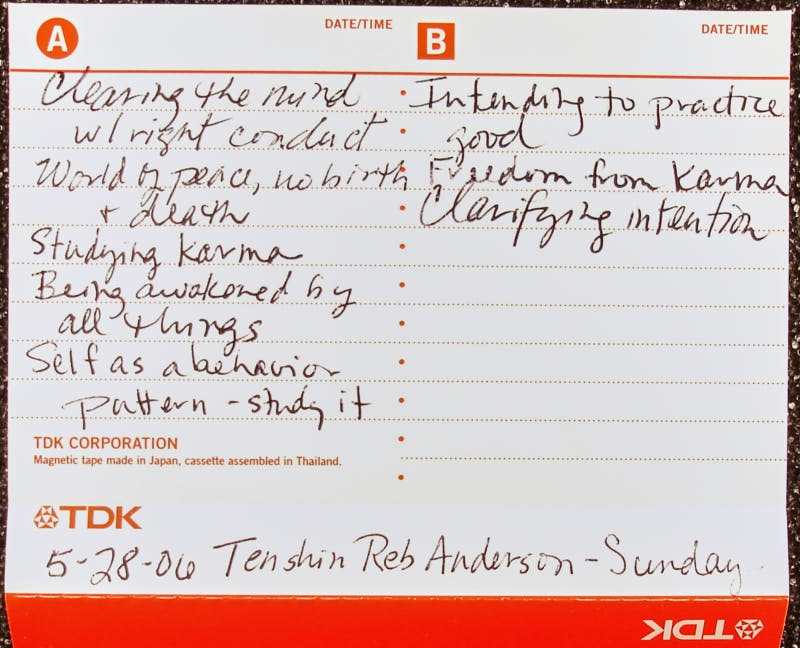 A
DATE/TIME
Clearing the mind
w/ right conduct
World of peace, no birth
+ death
Studying Karma
Being awakened by
all things
Self as a behavior
pattern - study it
B
DATE/TIME
Intending to practice
good
Freedom from Karma
Clarifying intention
TDK CORPORATION
Magnetic tape made in Japan, cassette assembled in Thailand.
TDK
5-28-06 Tenshin Reb Anderson - Sunday
TDK